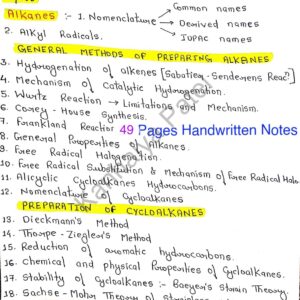 Common names
Alkanes :- 1. Nomenclature Derived names
IUPAC names
2. Alkyl Radicals.
GENERAL METHODS OF PREPARING ALKANES
3. Hydrogenation of alkenes [Sabatier-Senderens Reac]
4. Mechanism of Catalytic Hydrogenation.
5. Wurtz Reaction → Limitations and Mechanism.
6. Corey-House Synthesis.
7. Frankland Reaction 49 Pages Handwritten Notes
8. General Properties of Alkanes.
9. Free Radical Halogenation.
10. Free Radical Substitution & Mechanism of Free Radical Halo
11. Alicyclic Cycloalkanes Hydrocarbons.
12. Nomenclature of Cycloalkanes
PREPARATION OF CYCLOALKANES
13. Dieckmann's Method
14. Thorpe-Ziegler's Method
15. Reduction of aromatic hydrocarbons.
16. Chemical and physical Properties of Cycloalkanes.
17. Stability of Cycloalkanes :- Baeyer's Strain Theory.
18. Sachse-Mohr Theory of